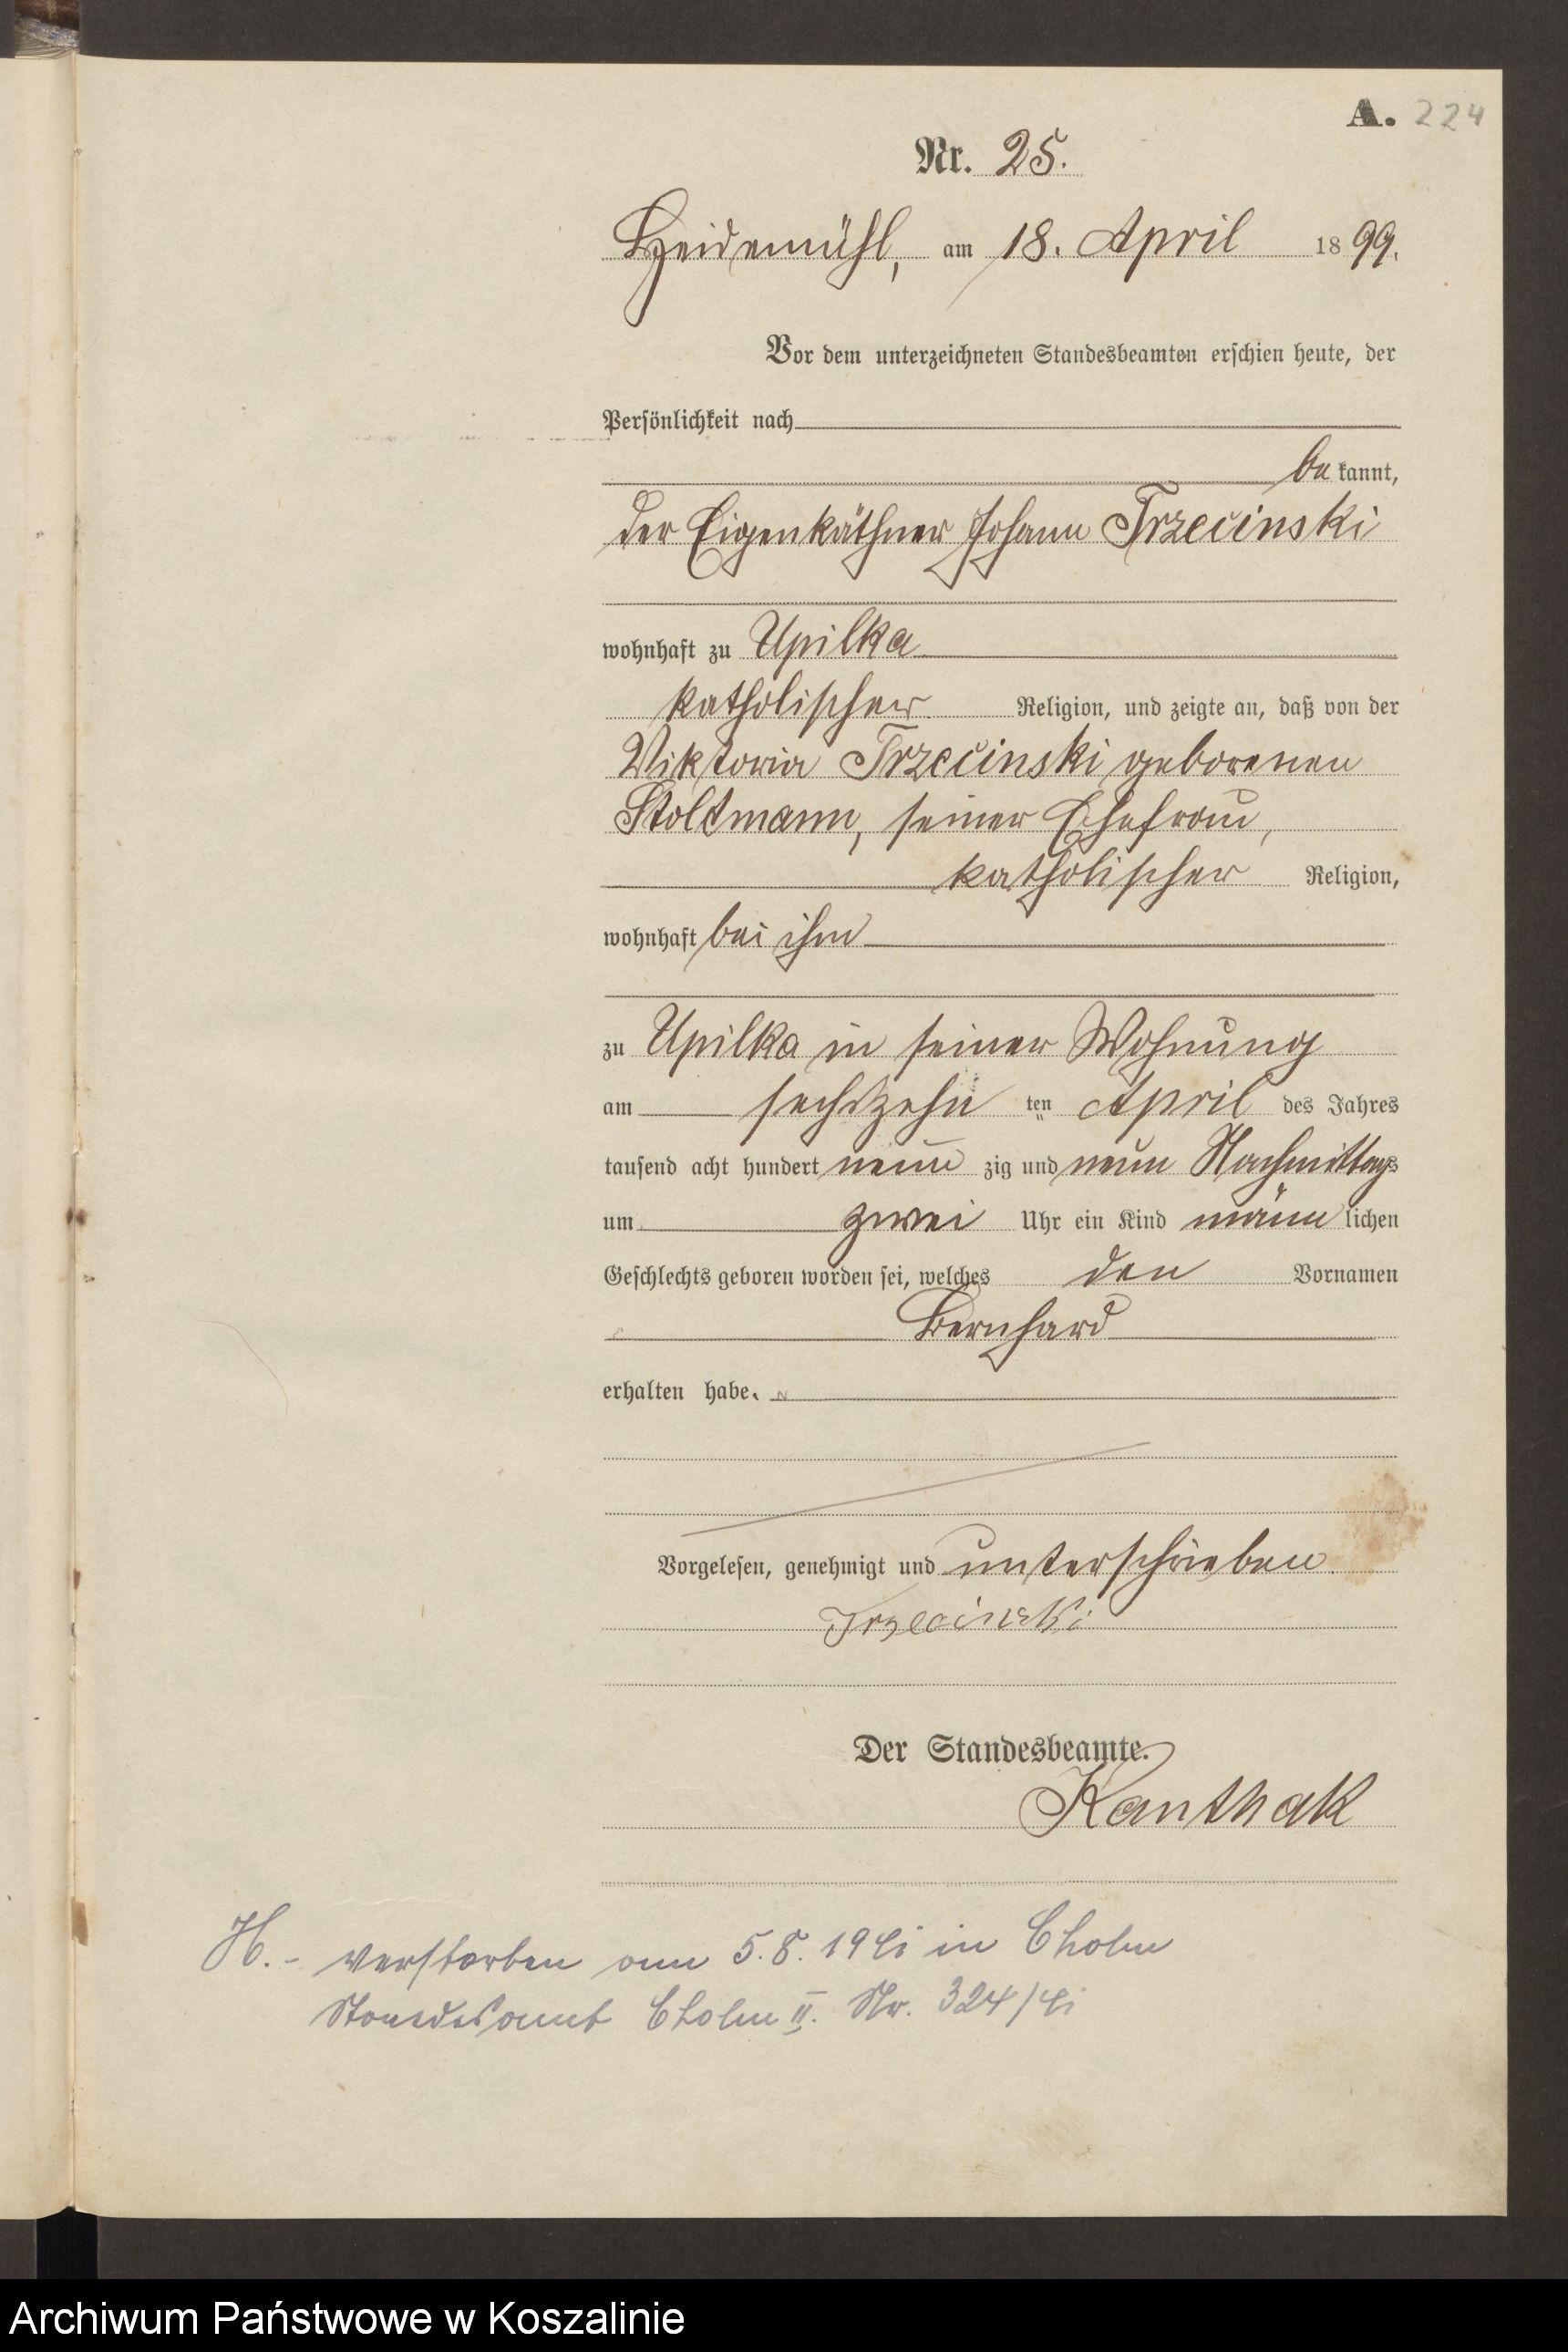 A. 224
Nr. 25.
Heidemühl, am 18. April 1899.
Vor dem unterzeichneten Standesbeamten erschien heute, der
Persönlichkeit nach
be kannt,
der Eigenkäthner Johann Trzecinski
wohnhaft zu Upilka
katholischer Religion, und zeigte an, daß von der
Viktoria Trzecinski geborenen
Stoltmann, seiner Ehefrau,
katholischer Religion,
wohnhaft bei ihm
zu Upilka in seiner Wohnung
am sechszehn ten April des Jahres
tausend acht hundert neun zig und neun Nachmittags
um zwei Uhr ein Kind männ lichen
Geschlechts geboren worden sei, welches den Vornamen
Bernhard
erhalten habe.
Vorgelesen, genehmigt und unterschrieben
Trzecinski
Der Standesbeamte.
Kanthak
H. - verstorben am 5.8.1941 in Cholm
Standesamt Cholm II. Nr. 324/41
Archiwum Państwowe w Koszalinie